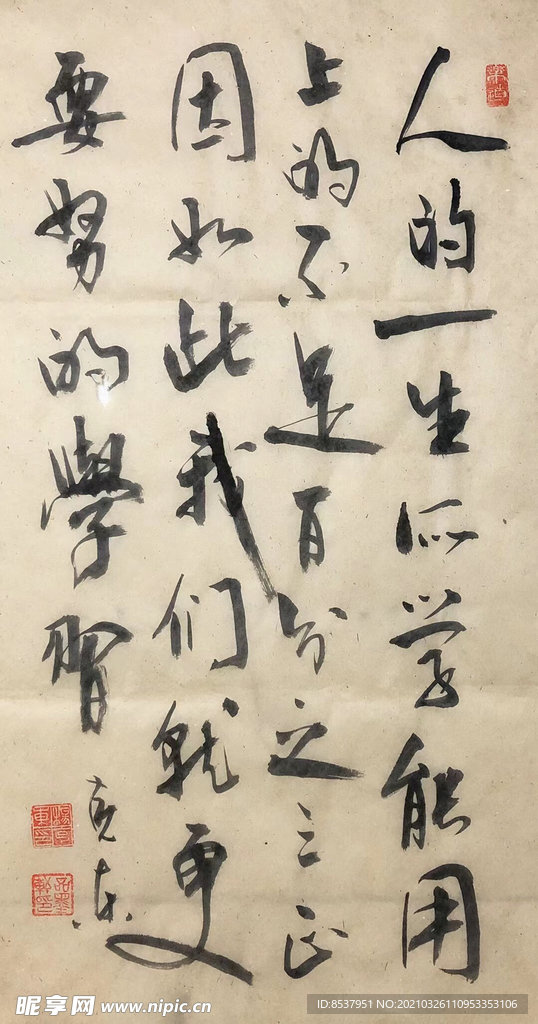 人的一生所学能用
上的不足百分之三正
因如此我们就更
要努的學習
克东
昵享网 www.nipic.cn
ID:8537951 NO:20210326110953353106